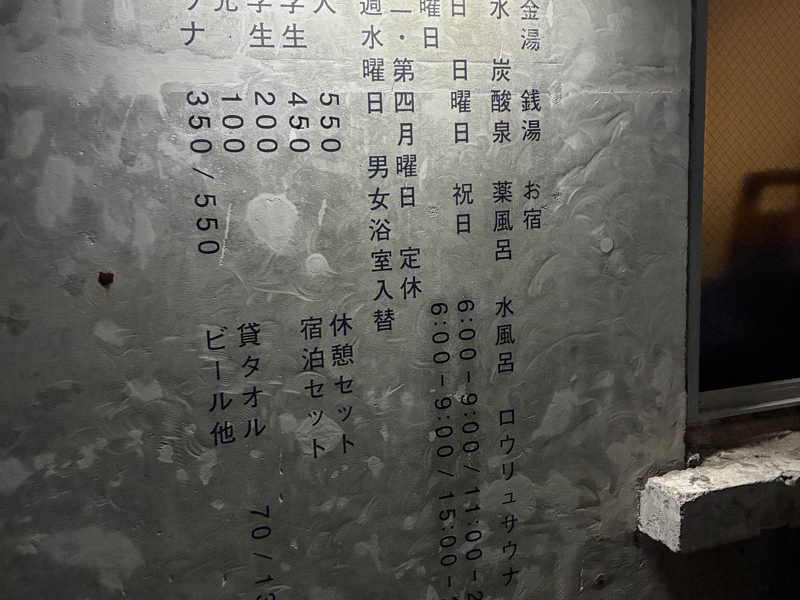 金湯 銭湯 お宿
水 炭酸泉 薬風呂 水風呂 ロウリュサウナ
日 日曜日 祝日 6:00-9:00/11:00-2
曜日 6:00-9:00/15:00-
二・第四月曜日 定休
週水曜日 男女浴室入替
人 550 休憩セット
学生 450 宿泊セット
学生 200 貸タオル 70/13
100 ビール他
ナ 350/550